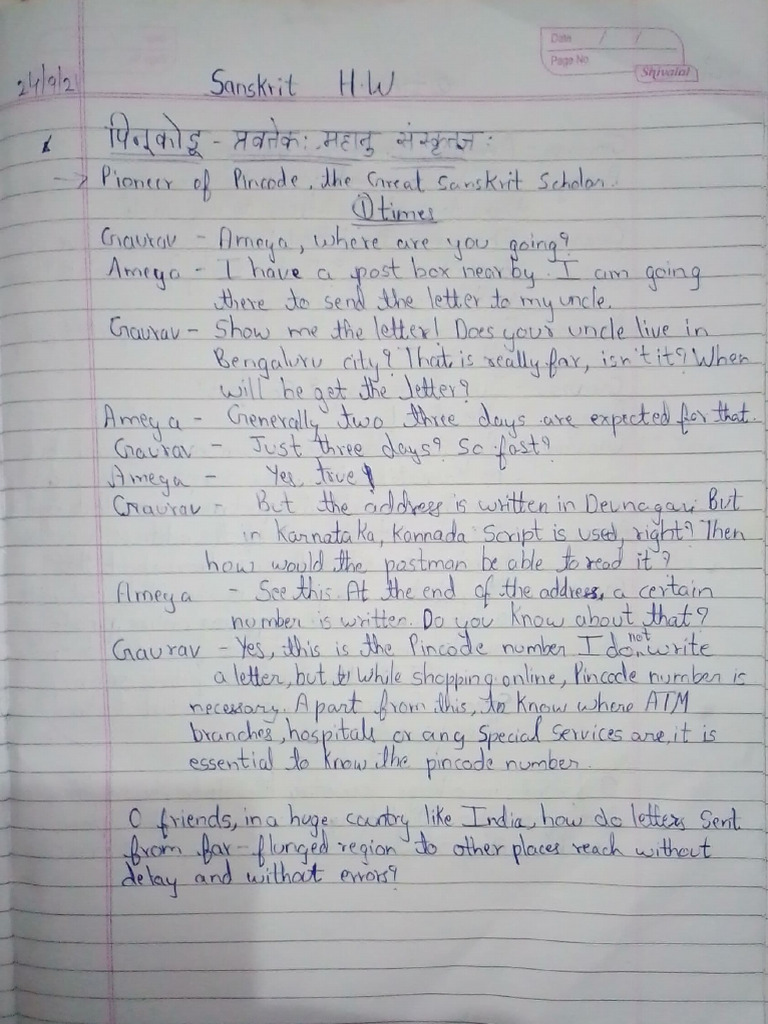 Date / /
Page No.
Shivalal
24/9/2
Sanskrit H.W
पिन्‌कोड् - प्रवर्तकः महान् संस्कृतज्ञः
→ Pioneer of Pincode, the Great Sanskrit Scholar.
① times
Gaurav - Ameya, where are you going?
Ameya - I have a post box near by. I am going
there to send the letter to my uncle.
Gaurav - Show me the letter! Does your uncle live in
Bengaluru city? That is really far, isn't it? When
will he get the letter?
Ameya - Generally two three days are expected for that.
Gaurav - Just three days? So fast?
Ameya - Yes, true!
Gaurav - But the address is written in Devnagari. But
in Karnataka, Kannada Script is used, right? Then
how would the postman be able to read it?
Ameya - See this. At the end of the address, a certain
number is written. Do you know about that?
Gaurav - Yes, this is the Pincode number I do not write
a letter, but while shopping online, Pincode number is
necessary. Apart from this, to know where ATM
branches, hospitals or any Special Services are, it is
essential to know the pincode number.
O friends, in a huge country like India, how do letters sent
from far-flunged region to other places reach without
delay and without errors?